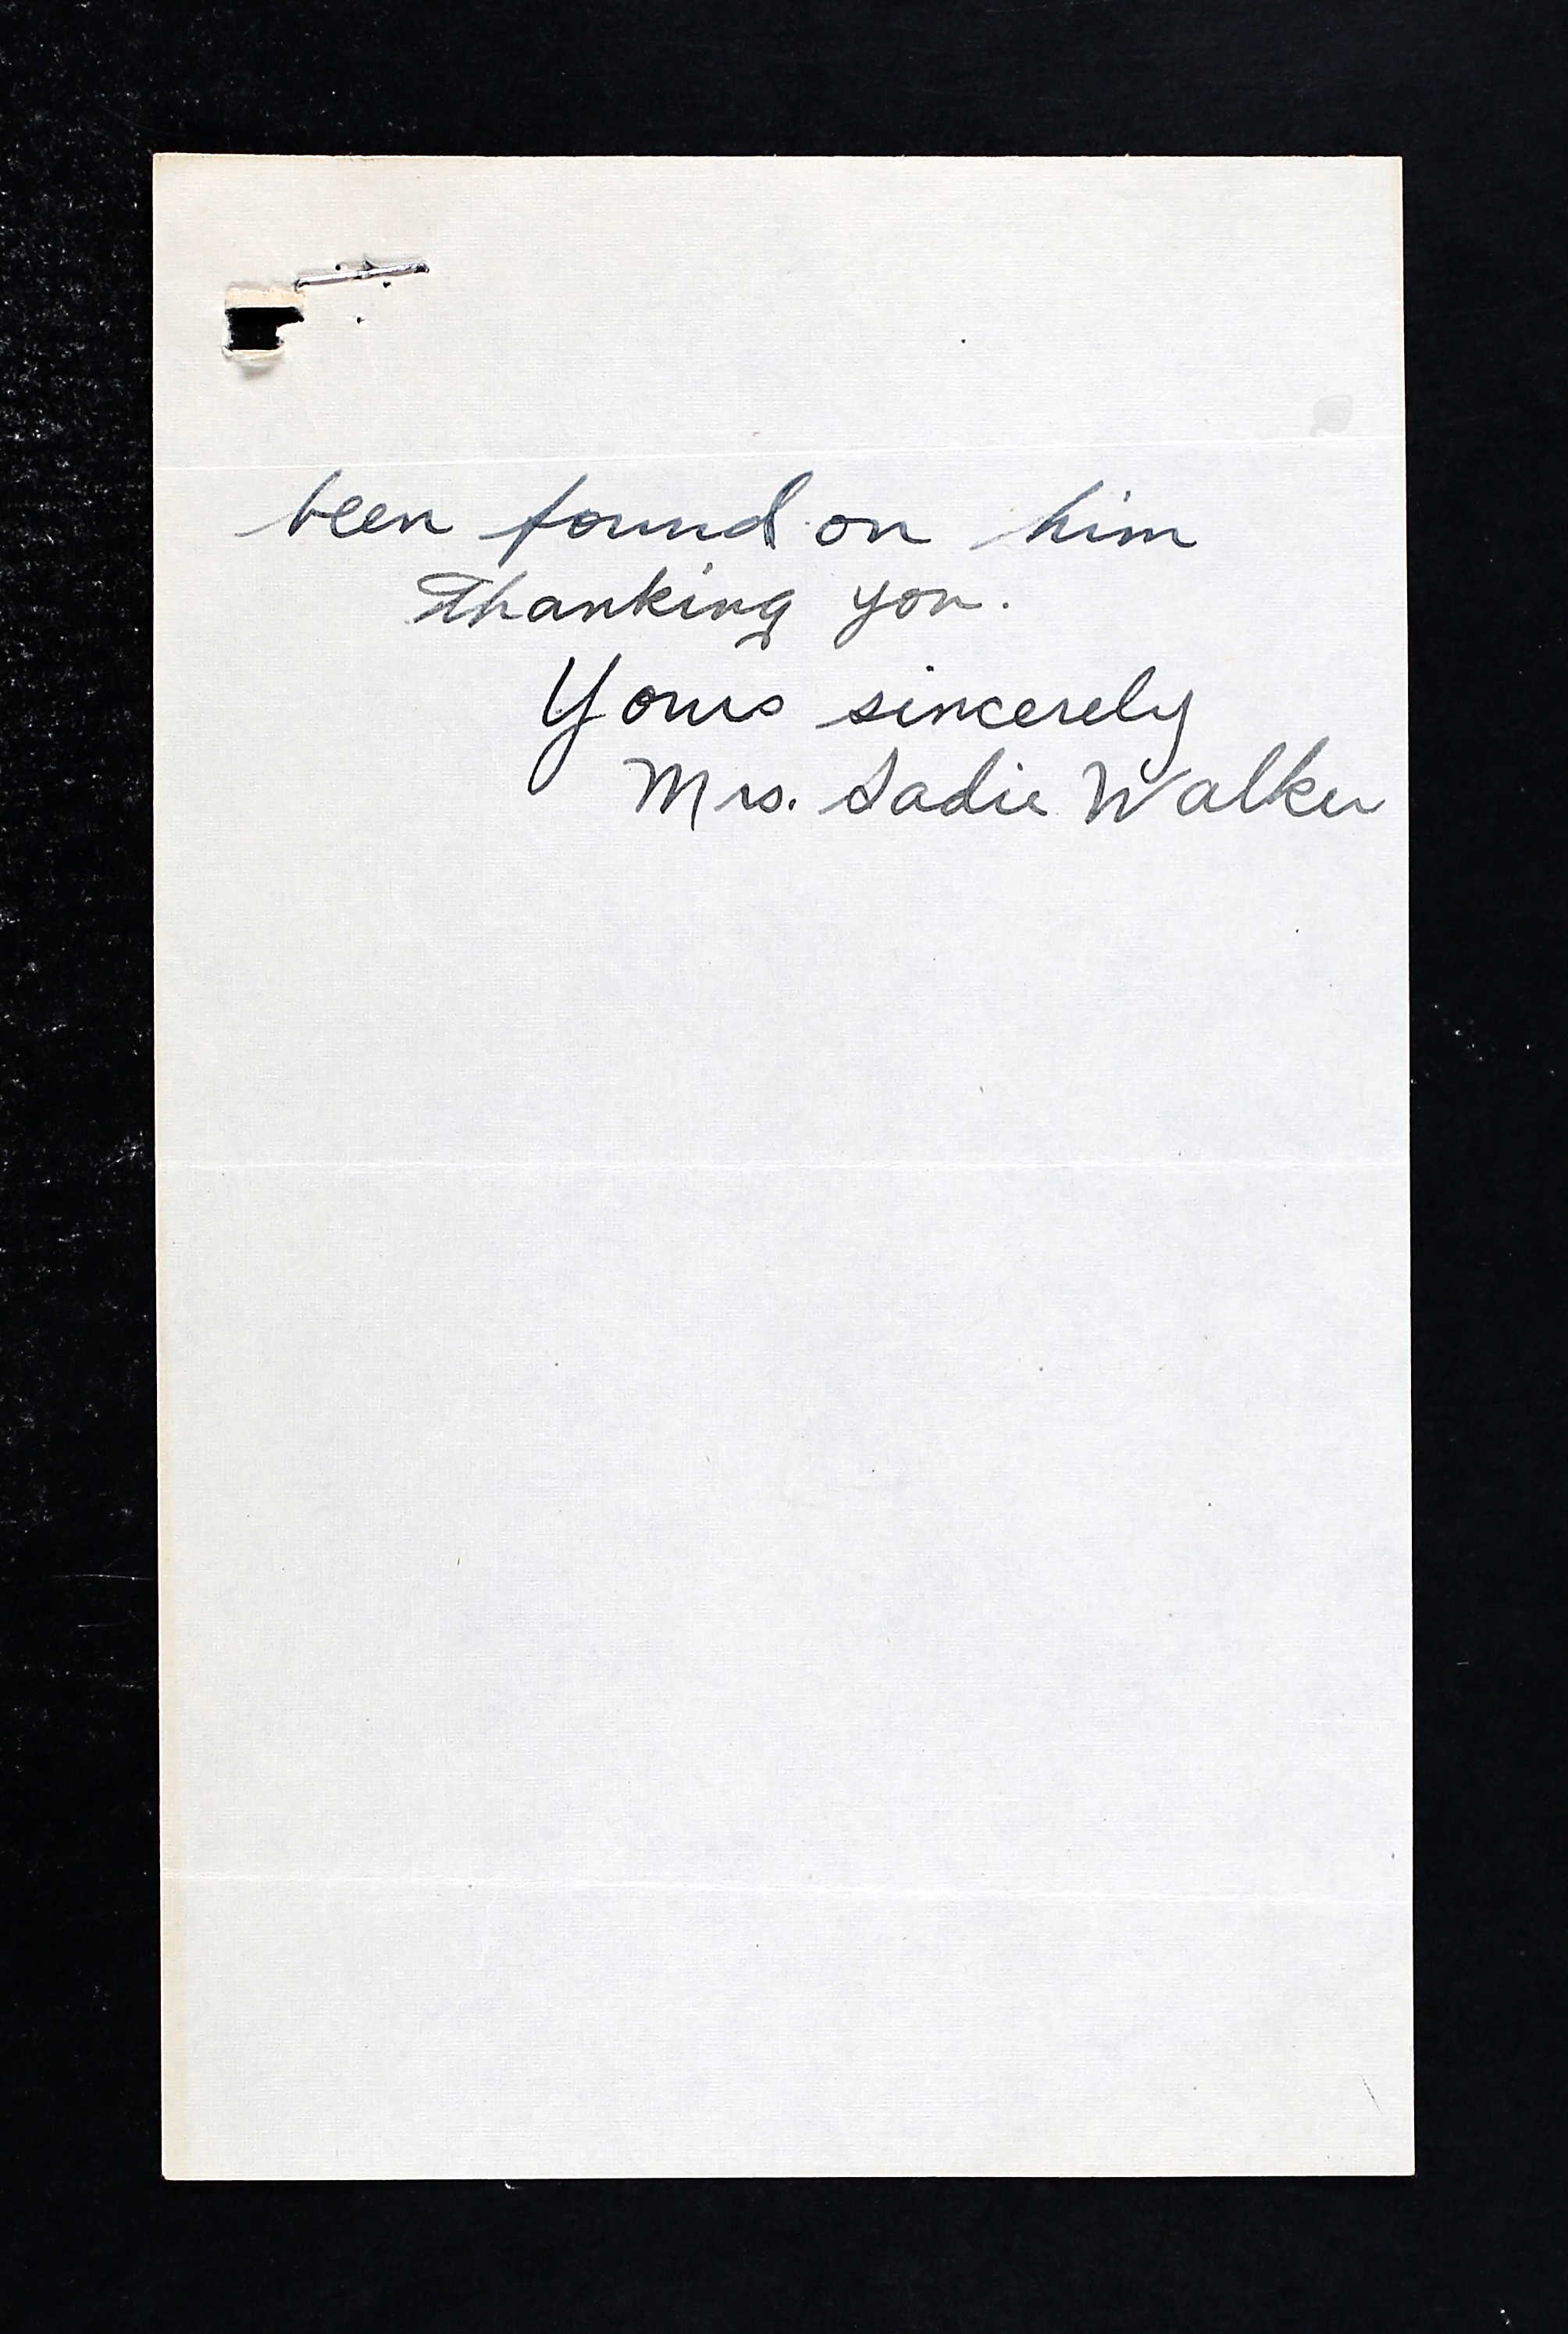 been found on him
Thanking you.
Yours sincerely
Mrs. Sadie Walker